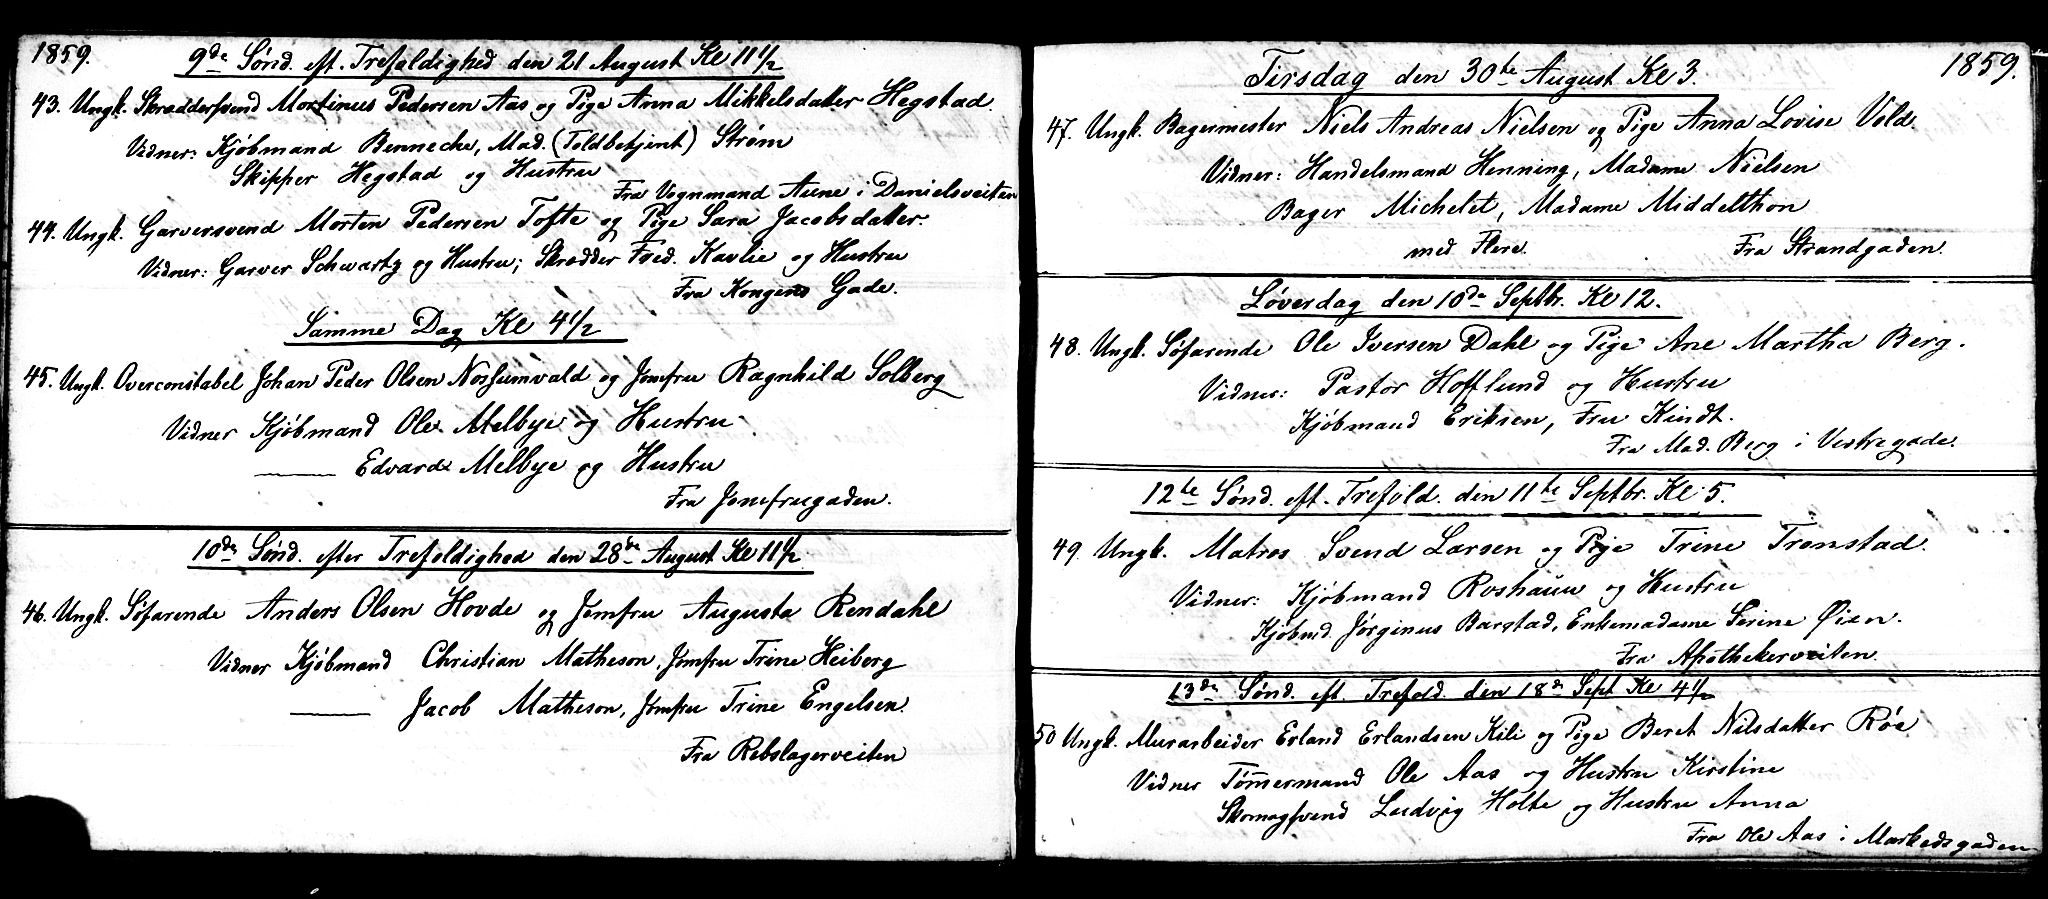 1859.
9de Sønd. eft. Trefoldighed den 21 August Kl 11 1/2
43. Ungk. Skrædderfvend Mortinus Pedersen Aas og Pige Anna Mikkelsdatter Hegstad.
Vidner: Kjøbmand Bennecke, Mad. (Toldbetjent) Strøm
Skipper Hegstad og Hustru
Fra Vognmand Aune i Danielsveiten
44. Ungk. Garversvend Morten Pedersen Tofte og Pige Sara Jacobsdatter.
Vidner: Garver Schwartz og Hustru; Skrædder Fred. Kavlie og Hustru
Fra Kongens Gade.
Samme Dag Kl 4 1/2
45. Ungk. Overconstabel Johan Peder Olsen og Jomfru Ragnhild Solberg
Vidner Kjøbmand Ole Melbye og Hustru
——— Edvard Melbye og Hustru
Fra Jomfrugaden.
10de Sønd. efter Trefoldighed den 28de August Kl 11 1/2
46. Ungk. Søfarende Anders Olsen Hovde og Jomfru Augusta Rendahl
Vidner Kjøbmand Christian Matheson, Jomfru Trine Heiberg
——— Jacob Matheson, Jomfru Trine Engelsen.
Fra Rebslagerveiten
1859.
Tirsdag den 30te August Kl 3.
47. Ungk. Bagermester Niels Andreas Nielsen og Pige Anna Lovise Vold.
Vidner: Handelsmand Henning, Madame Nielsen
Bager Michelet, Madame Middelthon
med Flere. Fra Strandgaden.
Løverdag den 10de Septbr. Kl 12.
48. Ungk. Søfarende Ole Iversen Dahl og Pige Ane Martha Berg.
Vidner: Pastor Hofflund og Hustru
Kjøbmand Eriksen, Fru Kindt.
Fra Mad. Berg i Vestregade.
12te Sønd. eft. Trefold. den 11te Septbr. Kl. 5.
49. Ungk. Matros Svend Larsen og Pige Trine Trønstad.
Vidner: Kjøbmand Roshauw og Hustru
Kjøbmd. Jørginus Barstad, Enkemadame Serine Øien.
Fra Apothekerveiten.
13de Sønd. eft. Trefold. den 18de Sept Kl 4 1/2
50 Ungk. Murarbeider Erland Erlandsen Kili og Pige Beret Nilsdatter Røe
Vidner Tømmermand Ole Aas og Hustru Kirstine
Skomagfvend Ludvig Holte og Hustru Anna
Fra Ole Aas i Markedsgaden